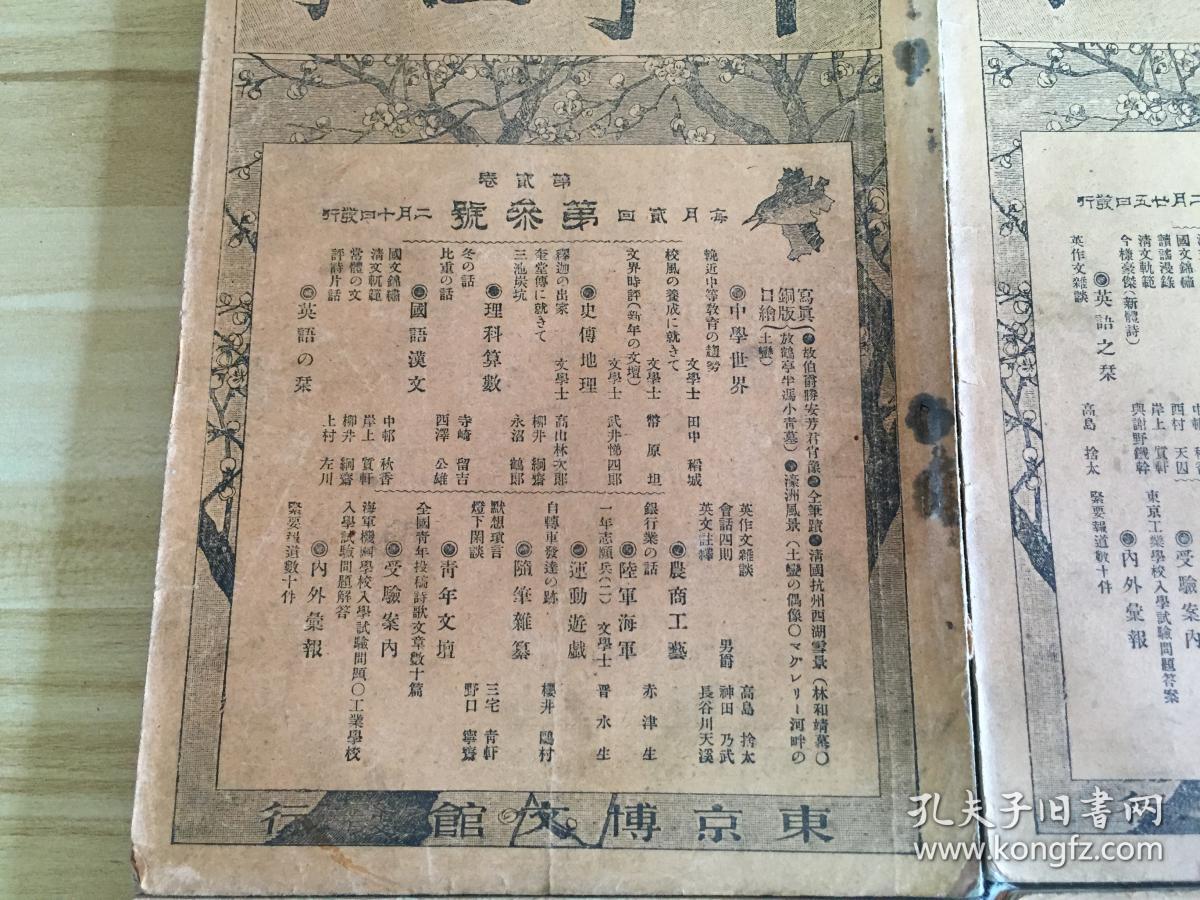 第貳卷
每月貳回 第參號 二月十日發行
寫眞銅版口繪
◉故伯爵勝安芳君肖像◉仝筆蹟◉淸國抗州西湖雪景(林和靖墓〇
放鶴亭半馮小靑墓)◉濠洲風景(土蠻の偶像〇マグレリー河畔の
土蠻)
◉中學世界
輓近中等敎育の趨勢 文學士 田中 稻城
校風の養成に就きて 文學士 幣原 坦
文界時評(新年の文壇) 文學士 武井悌四郞
◉史傳地理
釋迦の出家 文學士 高山林次郞
奎堂傳に就きて 柳井 絅齋
三池炭坑 永沼 鶴郞
◉理科算數
冬の話 寺崎 留吉
比重の話 西澤 公雄
◉國語漢文
國文錦繡 中邨 秋香
淸文軌範 岸上 質軒
常體の文 柳井 絅齋
評詩片話 上村 左川
◉英語の栞
英作文雜談 高島 捨太
會話四則 男爵 神田 乃武
英文註釋 長谷川天溪
◉農商工藝
銀行業の話 赤津 生
◉陸軍海軍
一年志願兵(二) 文學士 晋水生
◉運動遊戲
自轉車發達の跡 櫻井 鷗村
◉隨筆雜纂
默想瑣言 三宅 靑軒
燈下閑談 野口 寧齋
◉靑年文壇
全國靑年投稿詩歌文章數十篇
◉受驗案內
海軍機關學校入學試驗問題〇工業學校
入學試驗問題解答
◉內外彙報
緊要報道數十件
東京博文館發行
二月廿五日發行
國文錦繡
讀謠漫錄
淸文軌範
今樣豪傑(新體詩)
◉英語之栞
英作文雜談
西村 天囚
岸上 質軒
與謝野鐵幹
高島 捨太
◉受驗案內
東京工業學校入學試驗問題答案
◉內外彙報
緊要報道數十件
行
孔夫子旧书网
www.kongfz.com